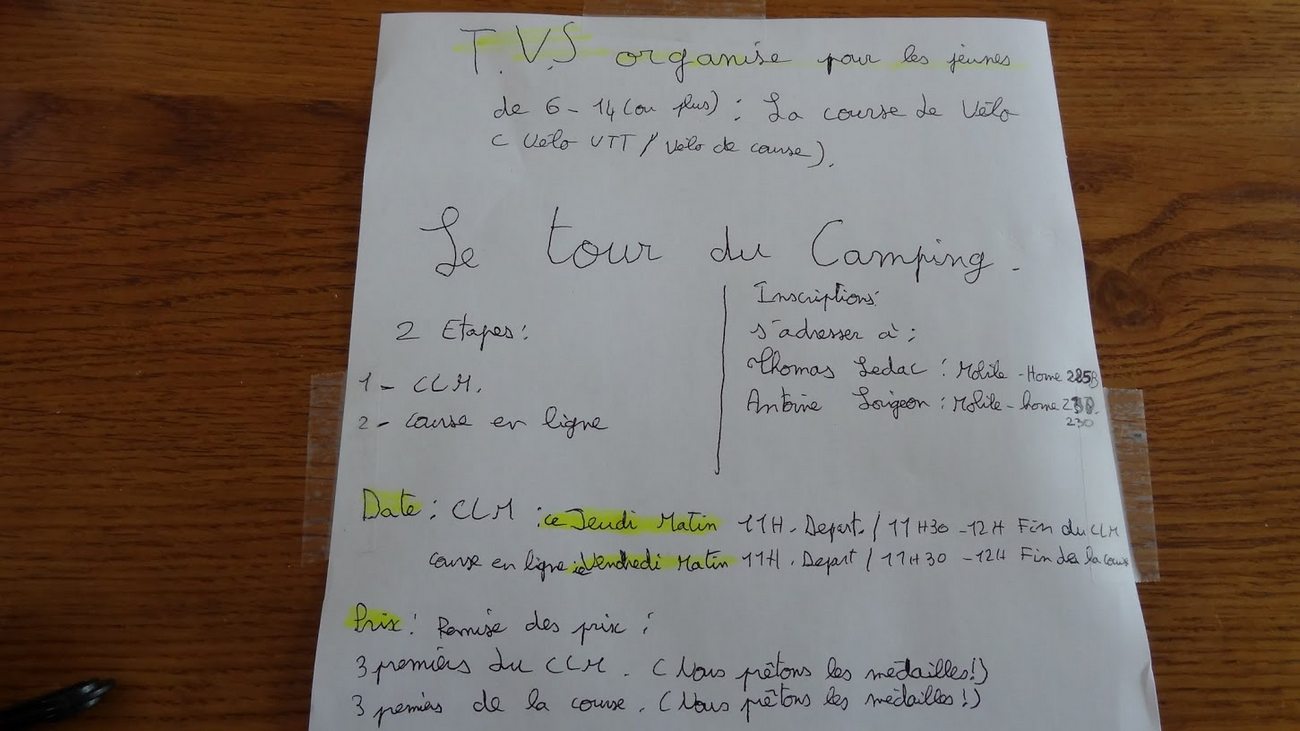 T.V.S organise pour les jeunes
de 6 - 14 (ou plus) : La course de Vélo
( Vélo VTT / Vélo de course).
Le tour du Camping.
2 Etapes :
1 - CLM.
2 - course en ligne
Inscriptions
s'adresser à :
Thomas Ledac : Mobile - Home 285B
Antoine Loigeon : Mobile - home
230
Date : CLM : ce Jeudi Matin 11H. Depart. / 11H30 - 12H Fin du CLM
course en ligne : ce Vendredi Matin 11H. Depart / 11H30 - 12H Fin de la course
Prix : Remise des prix :
3 premiers du CLM. (Nous prêtons les médailles!)
3 premiers de la course. (Nous prêtons les médailles!)